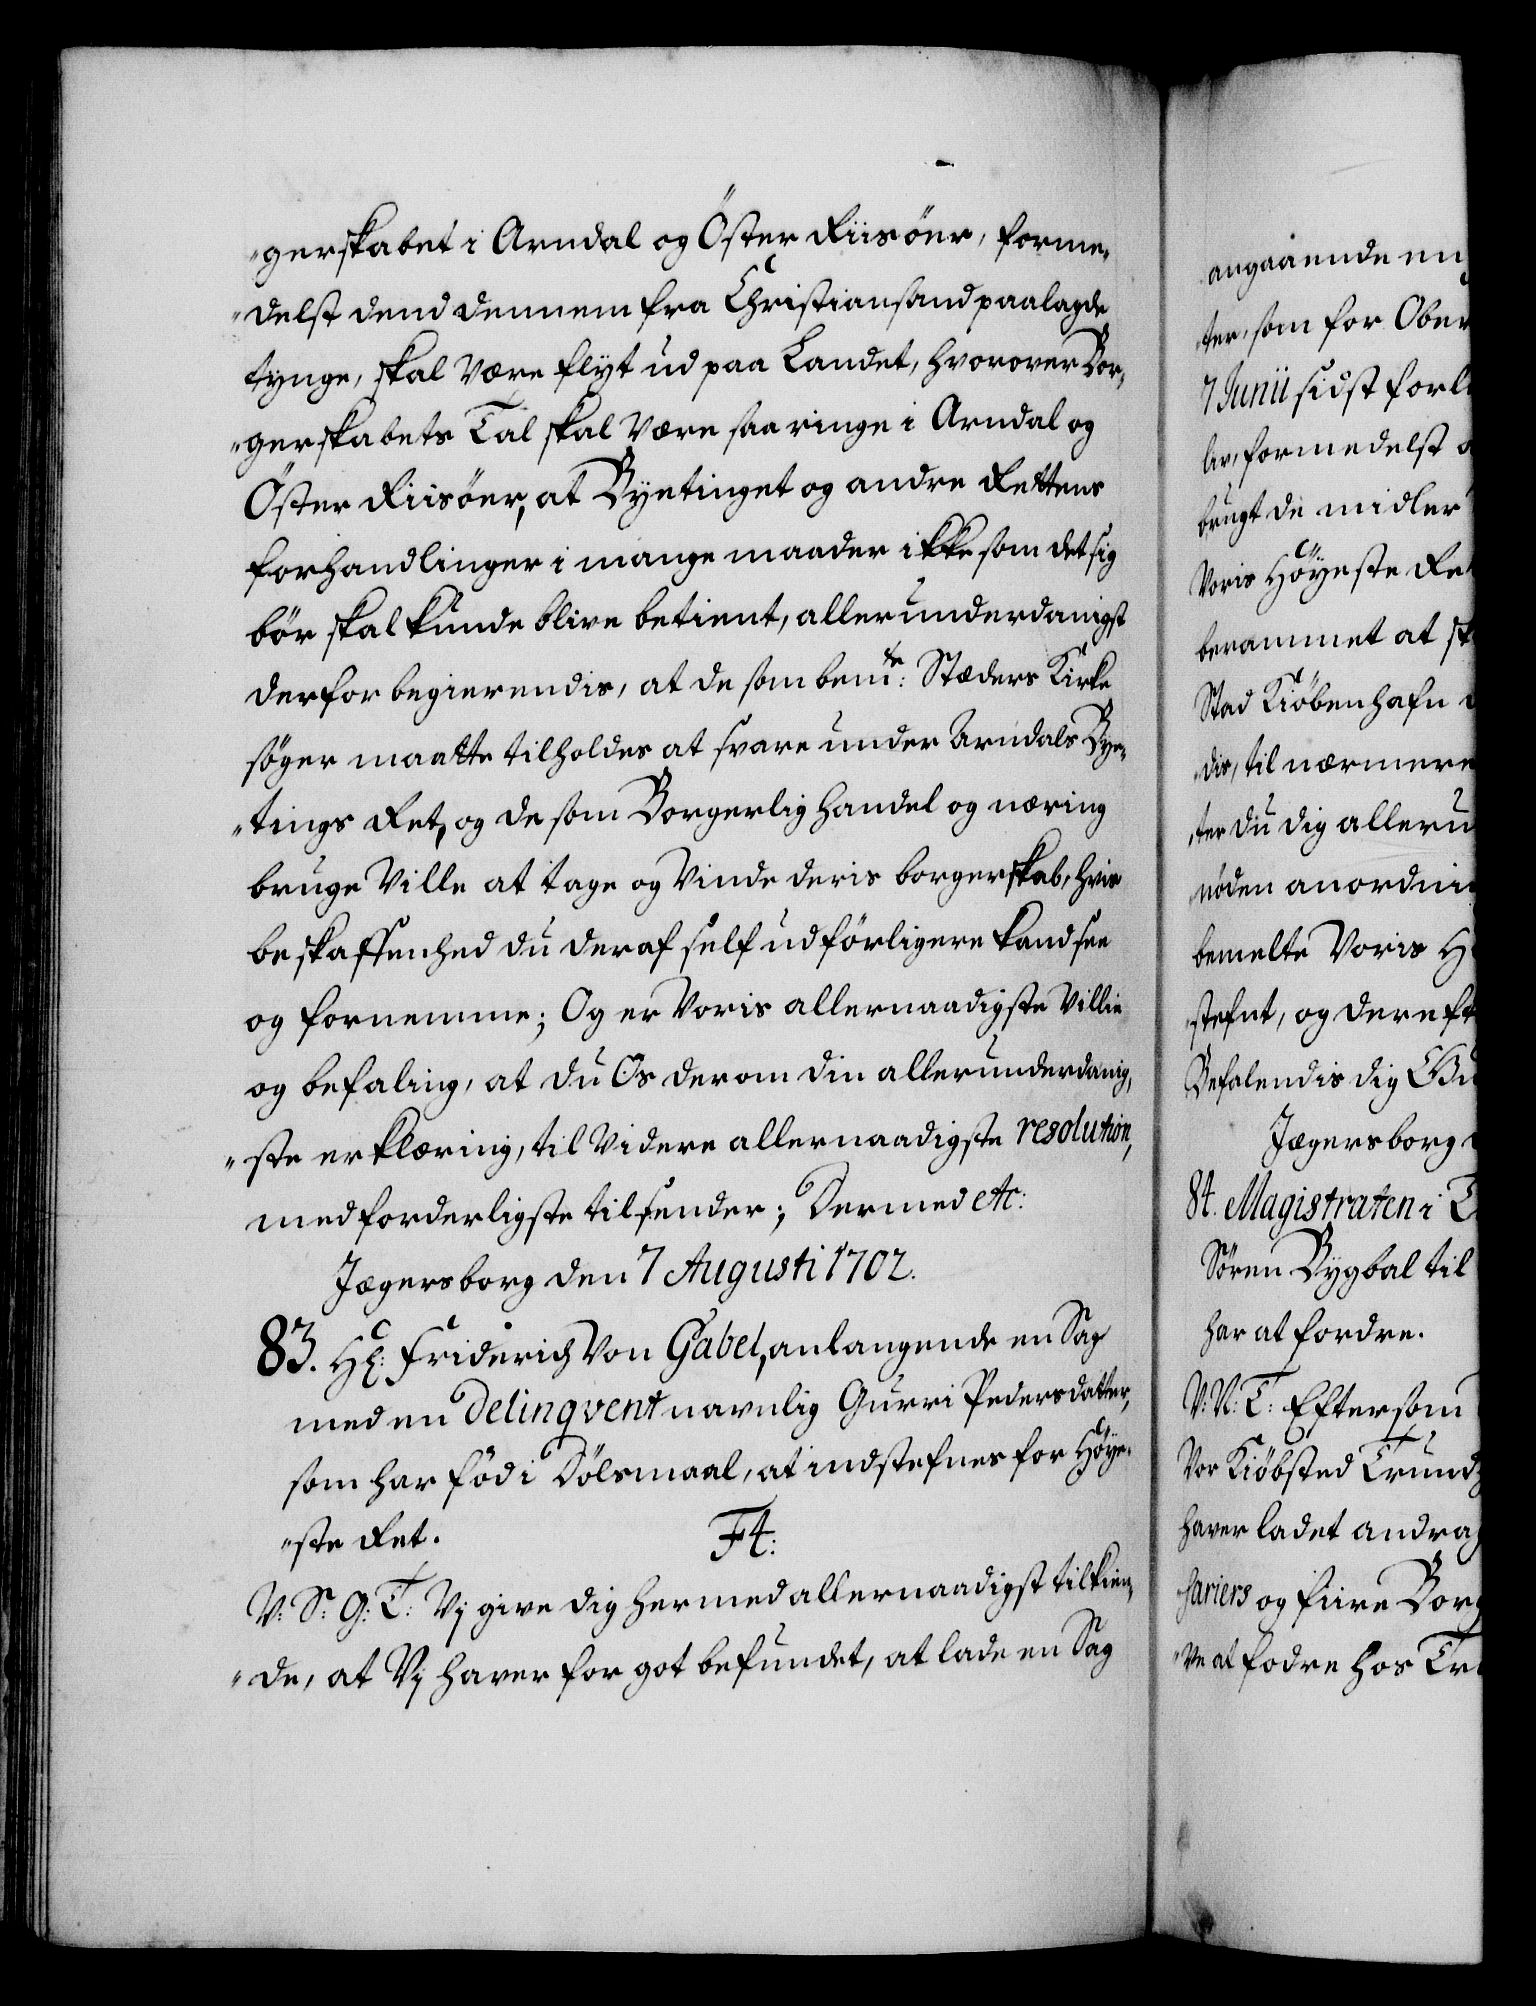 "gerskabet i Arndal og Öster Riisöer, forme"
"delst dend dennem fra Christiansand paalagde
tynge, skal være flyt ud paa Landet, hvorover Bor"
"gerskabets Tal skal være saa ringe i Arndal og
Öster Riisöer, at Byetinget og andre Rettens
forhandlinger i mange maader ikke som det sig
bör skal kunde blive betient, allerunderdanigst
derfor begierendis, at de som bemte: Stæders Kirke
söger maatte tilholdes at svare under Arndals Bye"
"tings Ret, og de som Borgerlig handel og næring
bruge Ville at tage og Vinde deris borgerskab, hvis
beskaffenhed du deraf self udförligere kand see
og fornemme; Og er Voris allernaadigste Villie
og befaling, at du Os derom din allerunderdanig,
"ste erklæring, til Videre allernaadigste resolution,
med forderligste tilsender; Dermed etc:
Jægersborg den 7 Augusti 1702.
83. Hl: Friderich Von Gabel, anlangende en Sag
med en Delinqvent navnlig Gurri Pedersdatter,
som har föd i Dölsmaal, at indstefnes for Höye"
"ste Ret.
F4:
V: S: G: T: Vj give dig hermed allernaadigst tilkien"
"de, at Vj haver for got befundet, at lade en Sag
angaaende en
"ter, som for Ober
7 Junii sidst forl
formedelst
brugt de midler
Voris Höyeste Ret
berammet at sk
Stad Kiöbenhafn
"dis, til nærmere
"ter du dig alleru
"nöden anordni
bemelte Voris H
"stefnt, og dereft
Befalendis dig Gu
Jægersborg
84. Magistraten i T
Sören Bygbal til
har at fordre.
V: V: T: Eftersom
Vor Kiöbsted Trund
haver ladet andrag
og fiire Borg
"ve at fodre hos Tr